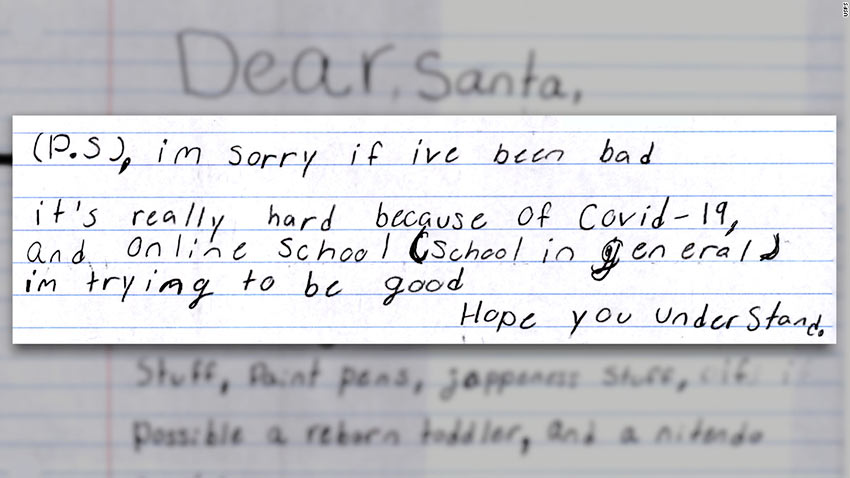 Dear, Santa,
(P.S), im sorry if ive been bad
it's really hard because of Covid-19,
and online school (school in general)
im trying to be good
Hope you understand.
Stuff, Paint pens, jappeness stuff, if
possible a reborn toddler, and a nitendo
USPS